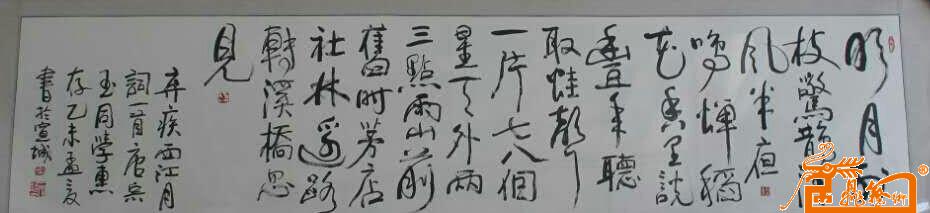 明月別
枝驚鵲清
風半夜
鳴蟬稻
花香里說
豐年聽
取蛙聲
一片七八個
星天外兩
三點雨山前
舊時茅店
社林邊路
轉溪橋忽
見
弃疾西江月
詞一首唐兵
玉同學惠
存乙未孟夏
書於宣城